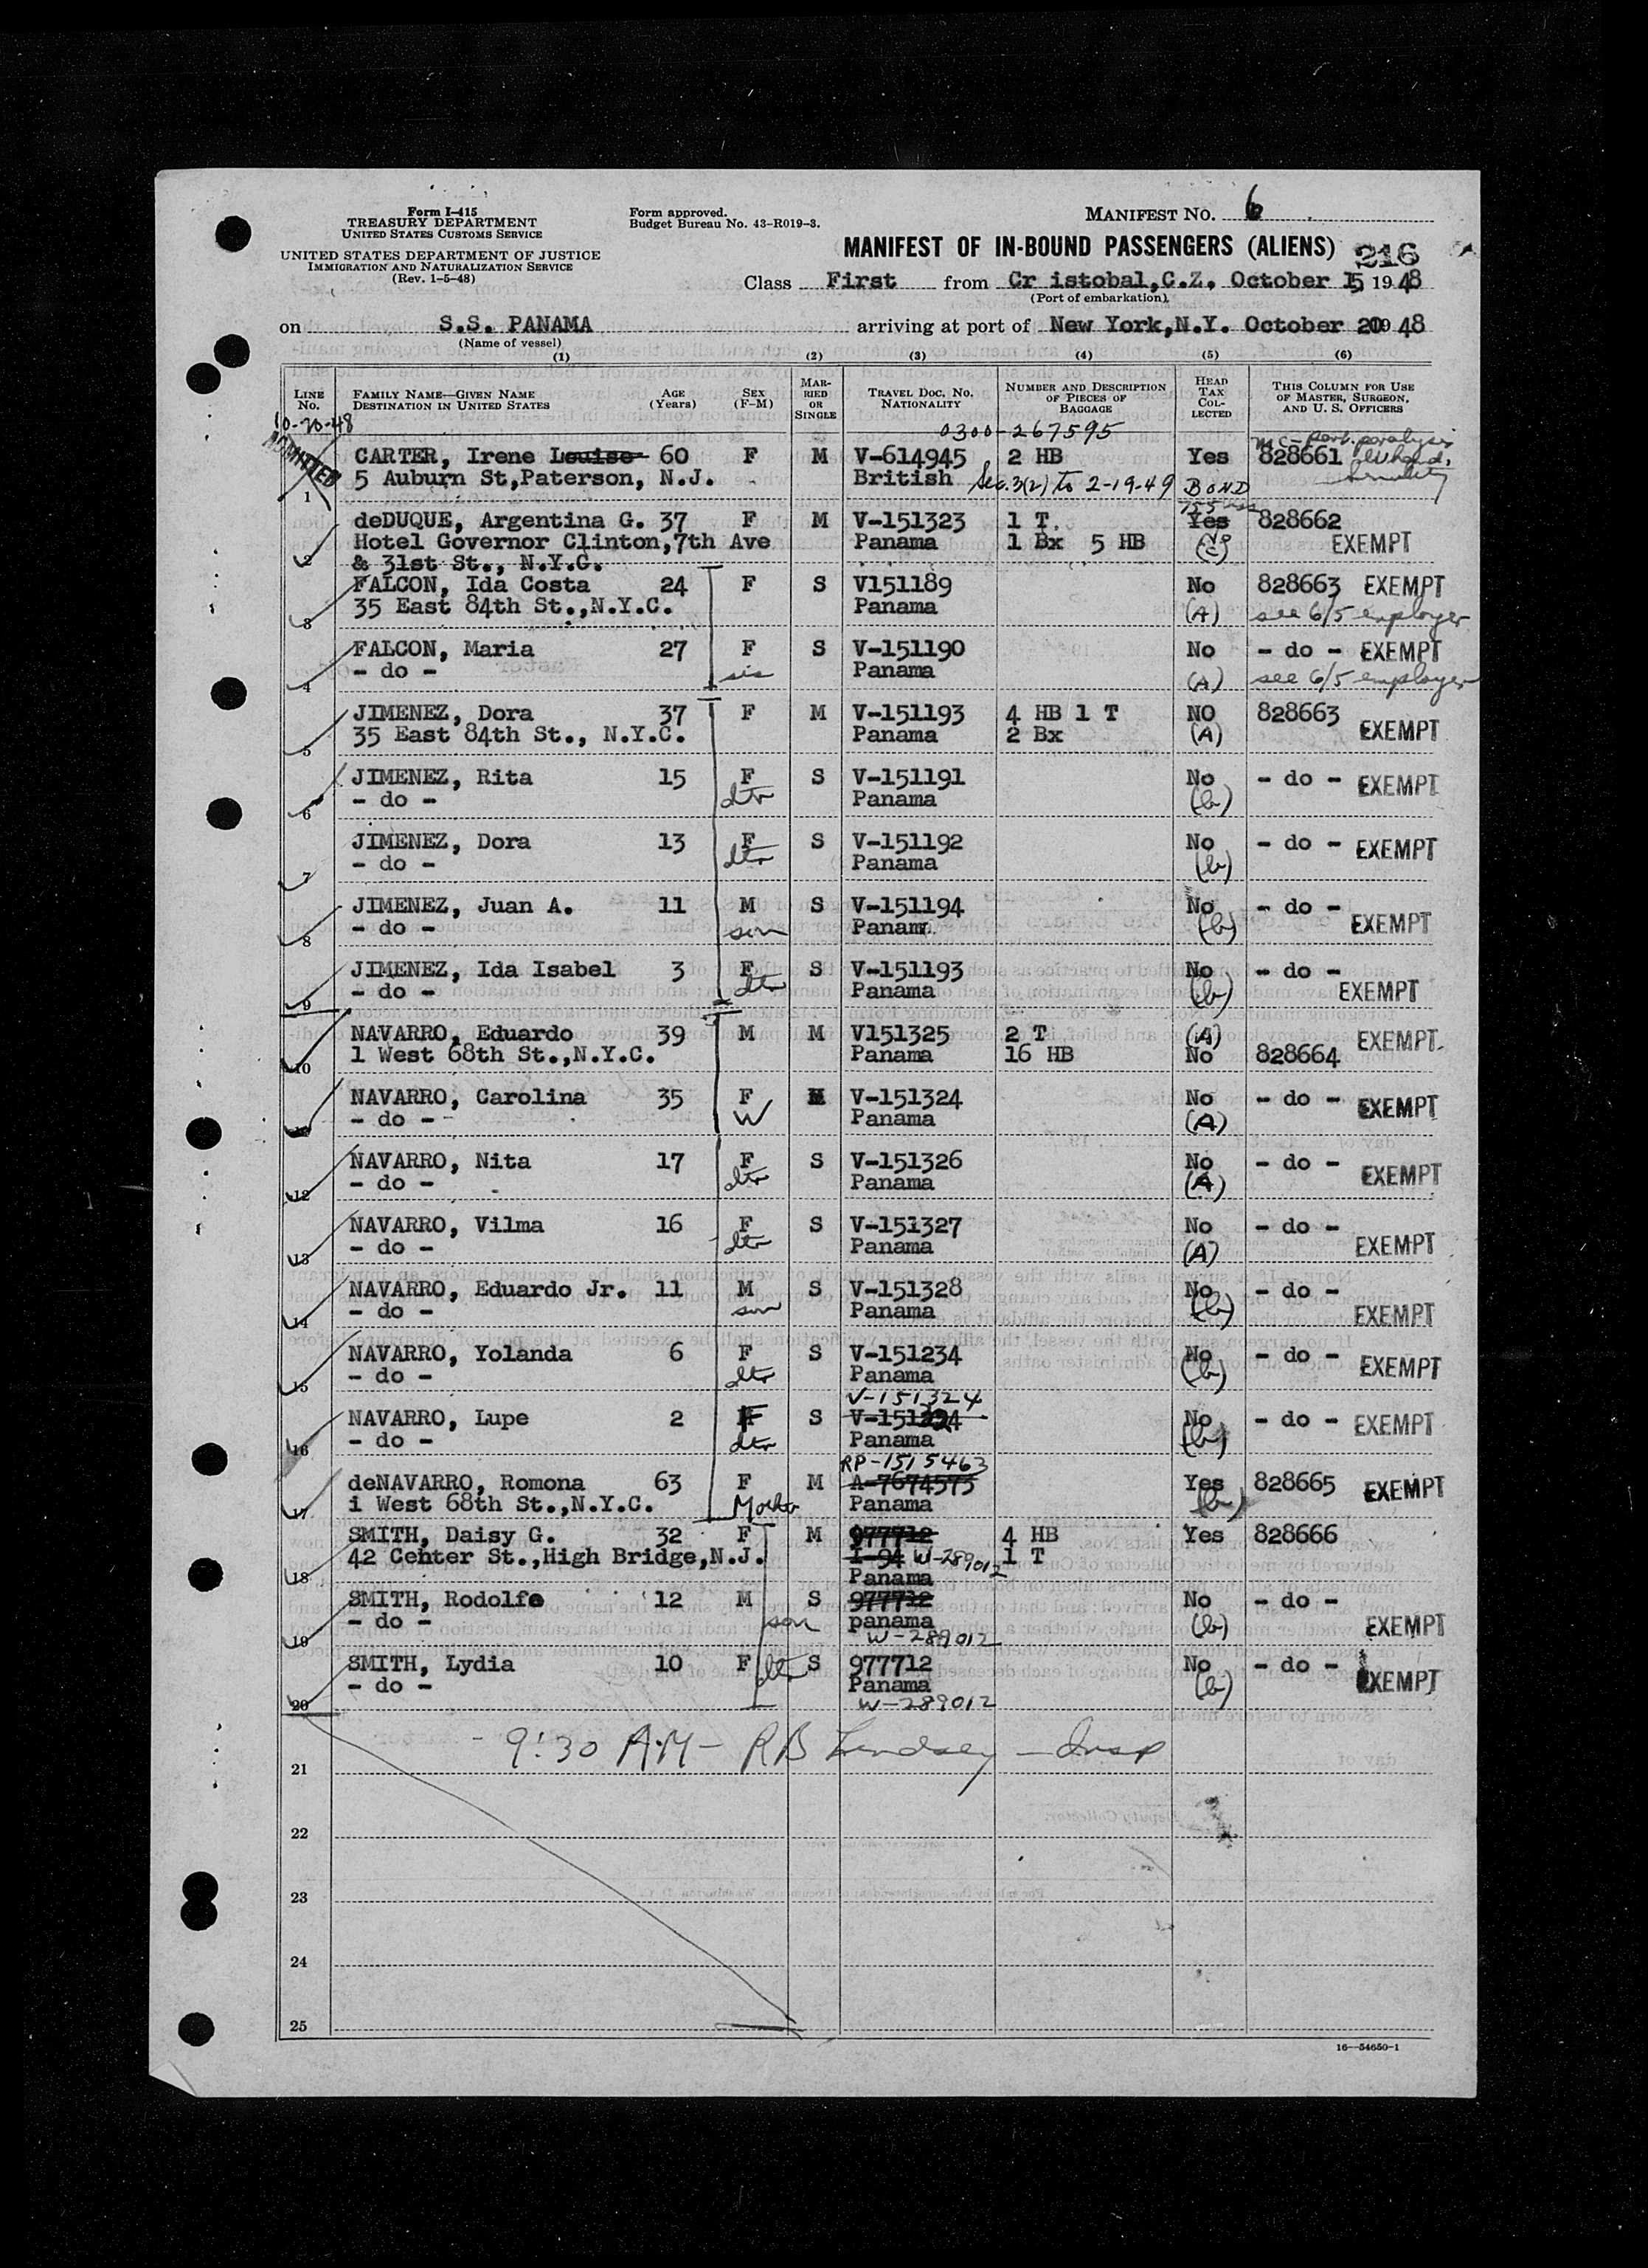 Form I-415
TREASURY DEPARTMENT
UNITED STATES CUSTOMS SERVICE
UNITED STATES DEPARTMENT OF JUSTICE
IMMIGRATION AND NATURALIZATION SERVICE
(Rev. 1-5-48)
Form approved.
Budget Bureau No. 43-R019-3.
MANIFEST NO. 6
MANIFEST OF IN-BOUND PASSENGERS (ALIENS) 216
Class First from Cr istobal,C.Z. October 15 1948
(Port of embarkation)
on S.S. PANAMA arriving at port of New York,N.Y. October 20 19 48
(Name of vessel)
(1) (2) (3) (4) (5) (6)
LINE No. FAMILY NAME—GIVEN NAME DESTINATION IN UNITED STATES AGE (Years) SEX (F-M) MAR-RIED OR SINGLE TRAVEL DOC. NO. NATIONALITY NUMBER AND DESCRIPTION OF PIECES OF BAGGAGE HEAD TAX COL-LECTED THIS COLUMN FOR USE OF MASTER, SURGEON, AND U. S. OFFICERS
10-20-48 0300-267595
ADMITTED
CARTER, Irene Louise 60 F M V-614945 2 HB Yes 828661
1 5 Auburn St,Paterson, N.J. British Sec. 3(2) to 2-19-49 BOND
deDUQUE, Argentina G. 37 F M V-151323 1 T. Yes 828662
2 Hotel Governor Clinton,7th Ave Panama 1 Bx 5 HB EXEMPT
& 31st St., N.Y.C.
FALCON, Ida Costa 24 F S V151189 No 828663 EXEMPT
3 35 East 84th St.,N.Y.C. Panama (A) see 6/5 employer
FALCON, Maria 27 F S V-151190 No - do - EXEMPT
4 - do - sis Panama (A) see 6/5 employer
JIMENEZ, Dora 37 F M V-151193 4 HB 1 T NO 828663
5 35 East 84th St., N.Y.C. Panama 2 Bx (A) EXEMPT
JIMENEZ, Rita 15 F S V-151191 No - do - EXEMPT
6 - do - dtr Panama (b)
JIMENEZ, Dora 13 F S V-151192 No - do - EXEMPT
7 - do - dtr Panama (b)
JIMENEZ, Juan A. 11 M S V-151194 No - do -
8 - do - son Panam (b) EXEMPT
JIMENEZ, Ida Isabel 3 F S V-151193 No - do -
9 - do - dtr Panama (b) EXEMPT
NAVARRO, Eduardo 39 M M V151325 2 T (A) EXEMPT
10 1 West 68th St.,N.Y.C. Panama 16 HB No 828664
NAVARRO, Carolina 35 F M V-151324 No - do - EXEMPT
- do - W Panama (A)
NAVARRO, Nita 17 F S V-151326 No - do -
12 - do - dtr Panama (A) EXEMPT
NAVARRO, Vilma 16 F S V-151327 No - do -
13 - do - dtr Panama (A) EXEMPT
NAVARRO, Eduardo Jr. 11 M S V-151328 No - do -
14 - do - son Panama (b) EXEMPT
NAVARRO, Yolanda 6 F S V-151234 No - do - EXEMPT
15 - do - dtr Panama (b)
V-151324
NAVARRO, Lupe 2 F S No - do - EXEMPT
16 - do - dtr Panama (b)
RP-1515463
deNAVARRO, Romona 63 F M A-7674573 Yes 828665 EXEMPT
17 i West 68th St.,N.Y.C. Mother Panama (b)
SMITH, Daisy G. 32 F M 977712 4 HB Yes 828666
42 Center St.,High Bridge,N.J. I-94 W-289012 1 T
18 Panama
SMITH, Rodolfo 12 M S 977712 No - do -
- do - son panama (b) EXEMPT
19 W-289012
SMITH, Lydia 10 F dtr S 977712 No - do -
- do - Panama (b) EXEMPT
20 W-289012
- 9:30 A.M - RB Lindsey - Insp
21
22
23
24
25
16—54650-1